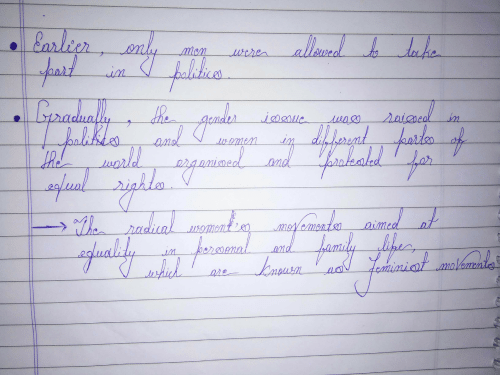 • Earlier, only men were allowed to take
part in politics.
• Gradually, the gender issue was raised in
politics and women in different parts of
the world organised and protested for
equal rights.
→ The radical women's movements aimed at
equality in personal and family life,
which are known as Feminist movements